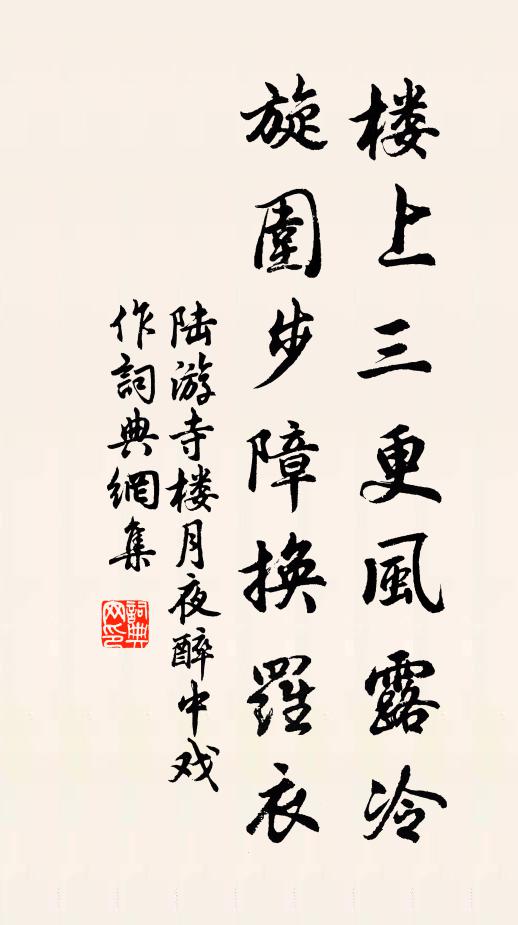 楼上三更風露冷
旋圍步障換羅衣
陆游寺楼月夜醉中戏
作詞典網集
詞典
网印